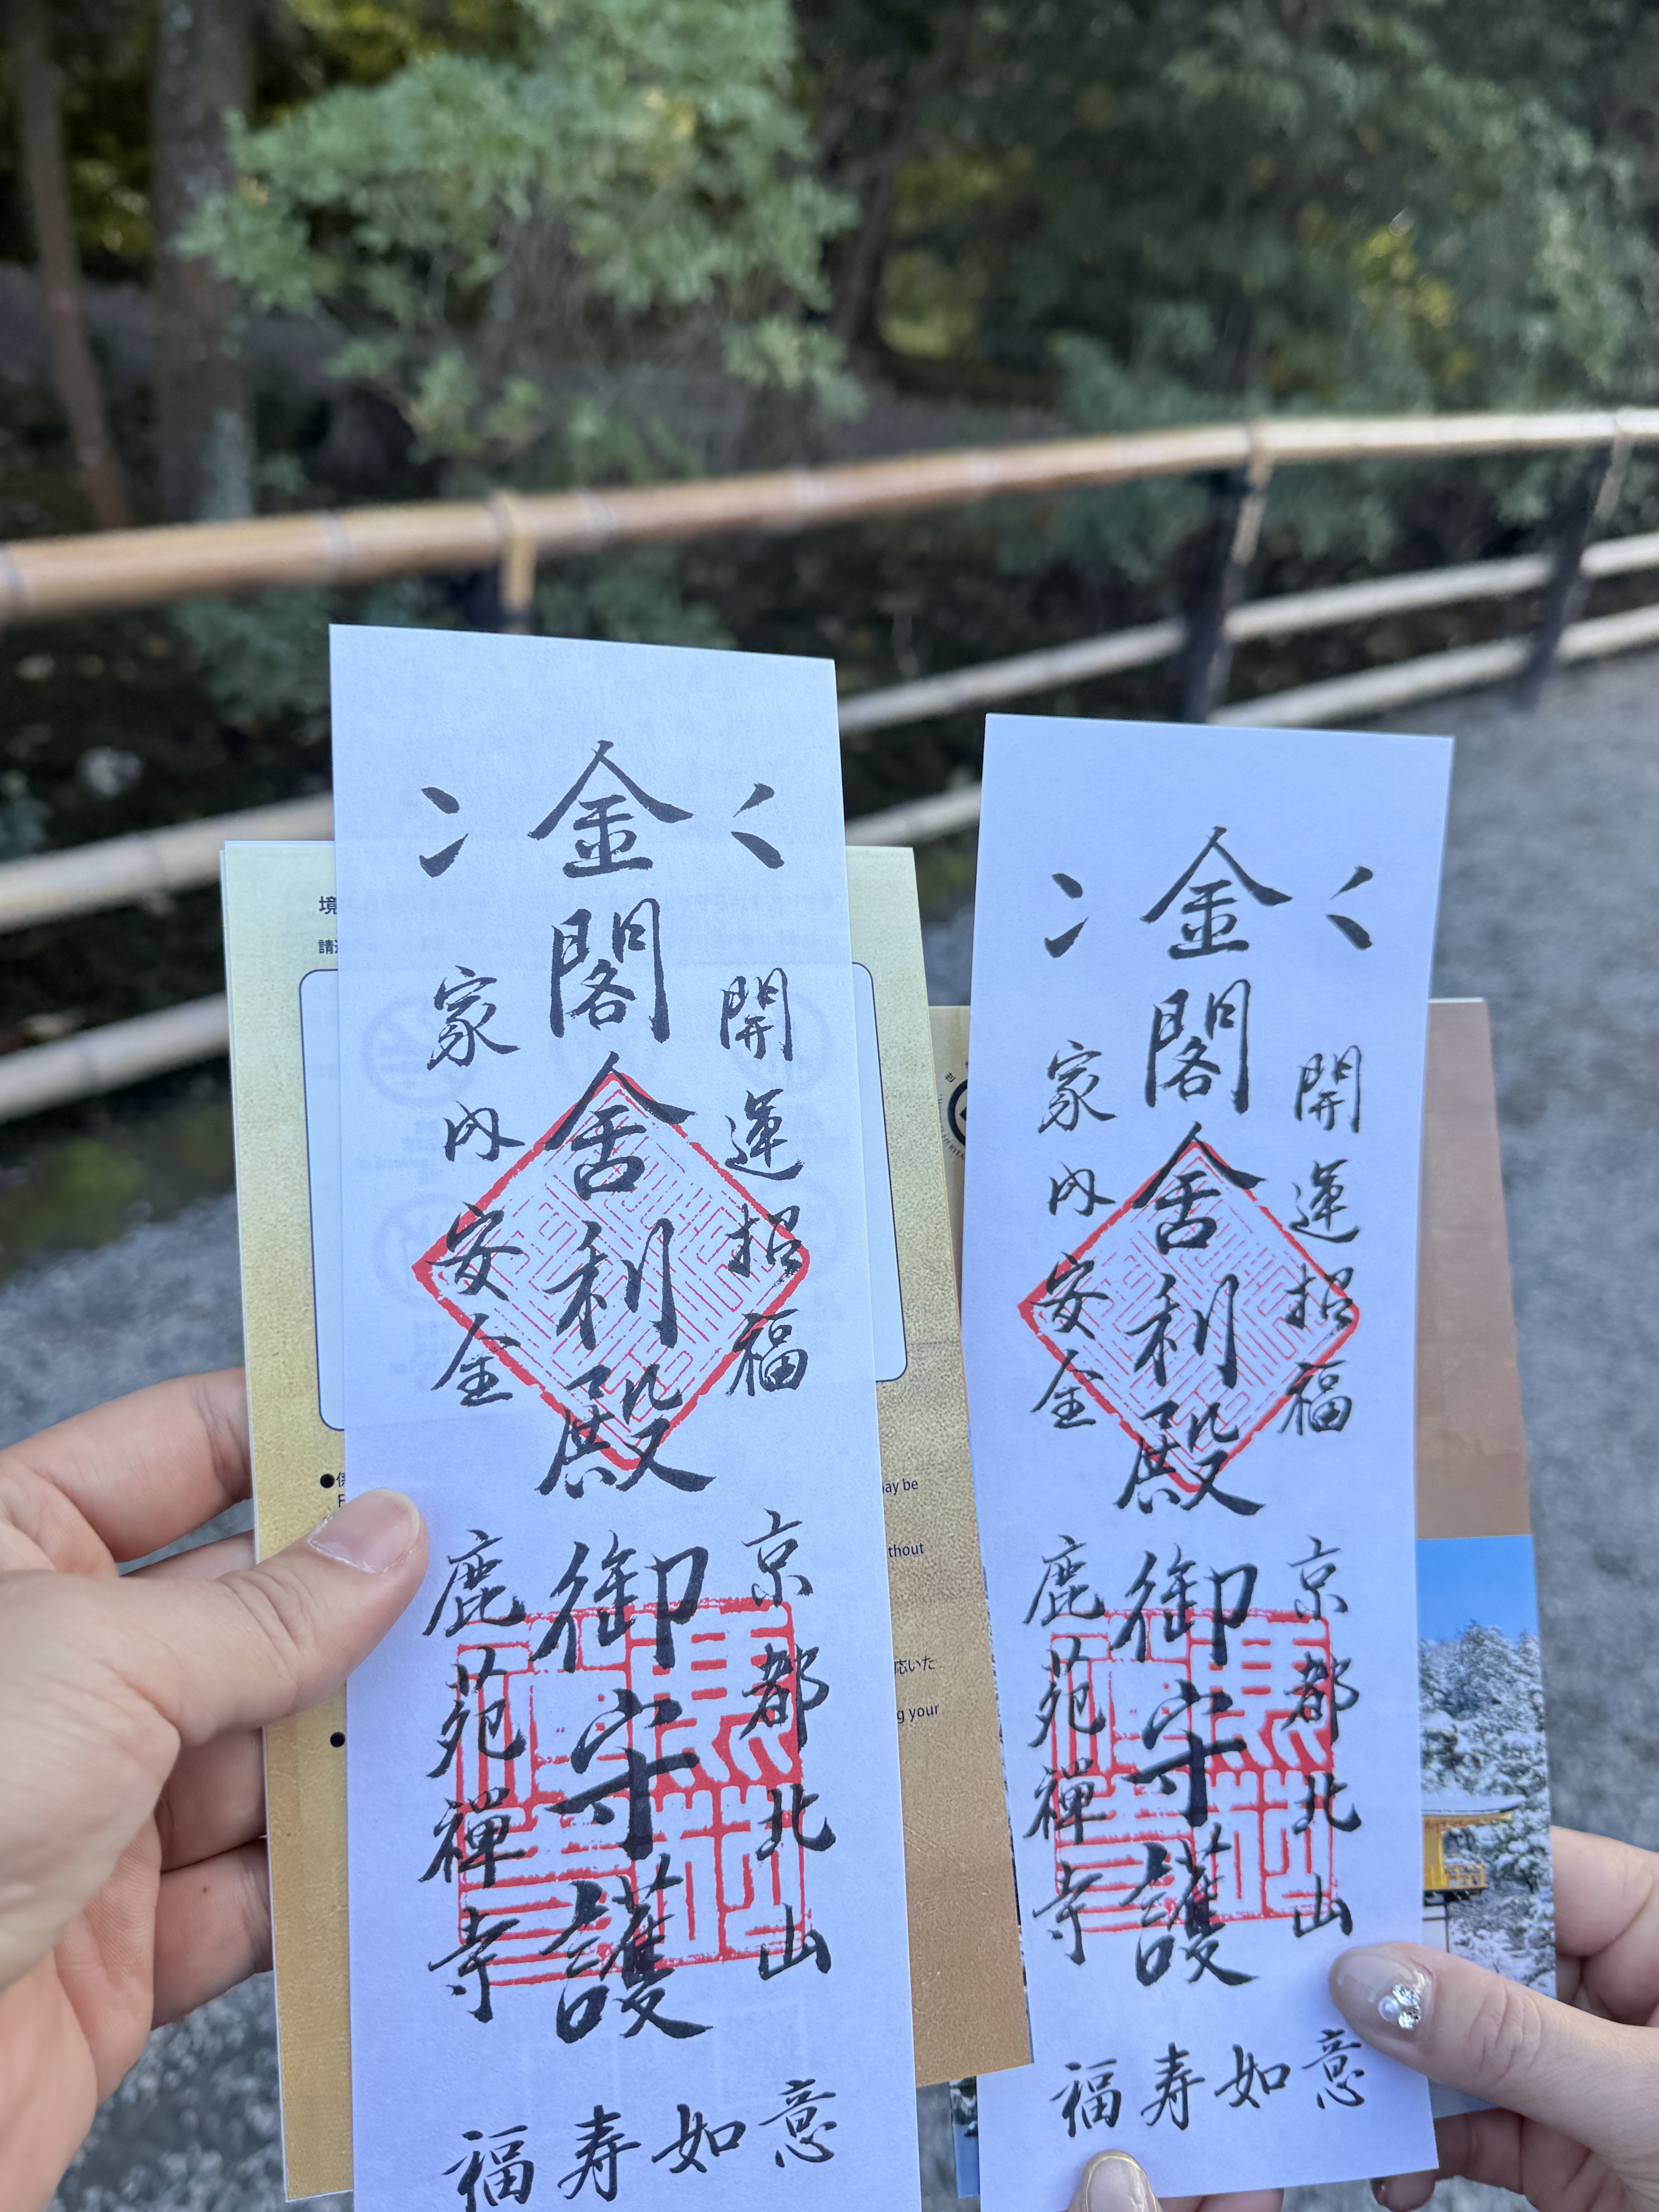 金閣舎利殿御守護
開運招福
家内安全
京都北山
鹿苑禅寺
福寿如意
金閣舎利殿御守護
開運招福
家内安全
京都北山
鹿苑禅寺
福寿如意
境
請
may be
thout
応いた
g your